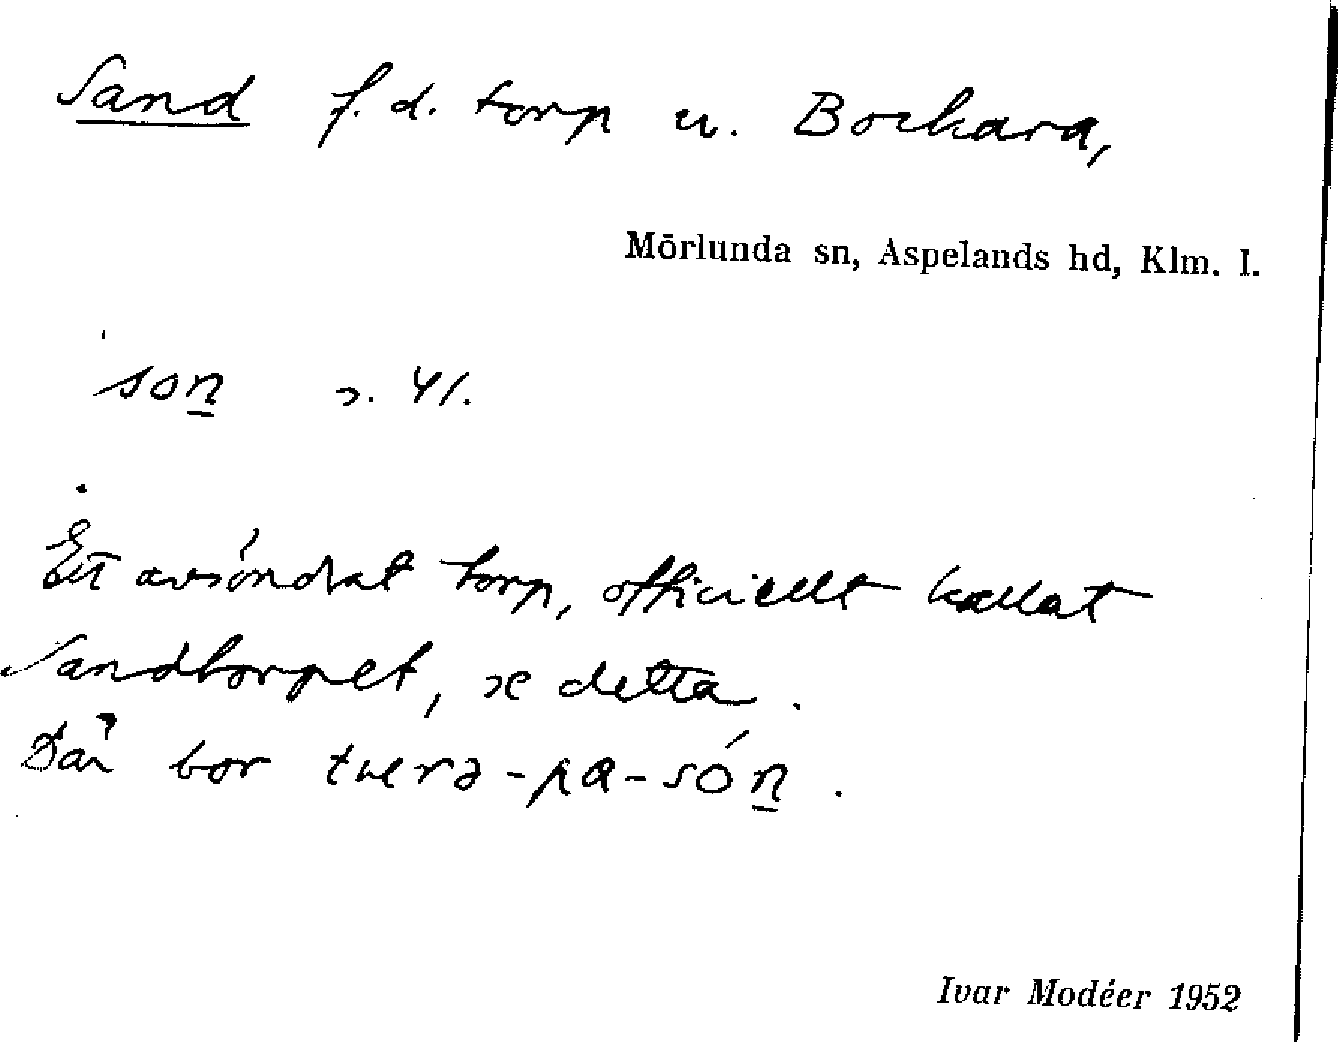 Sand f.d. torp u. Bockara,
Mörlunda sn, Aspelands hd, Klm. l.
son s. 41.
Ett avsöndrat torp, officiellt kallat
Sandtorpet, se detta.
Där bor tverə-pa-són.
Ivar Modéer 1952